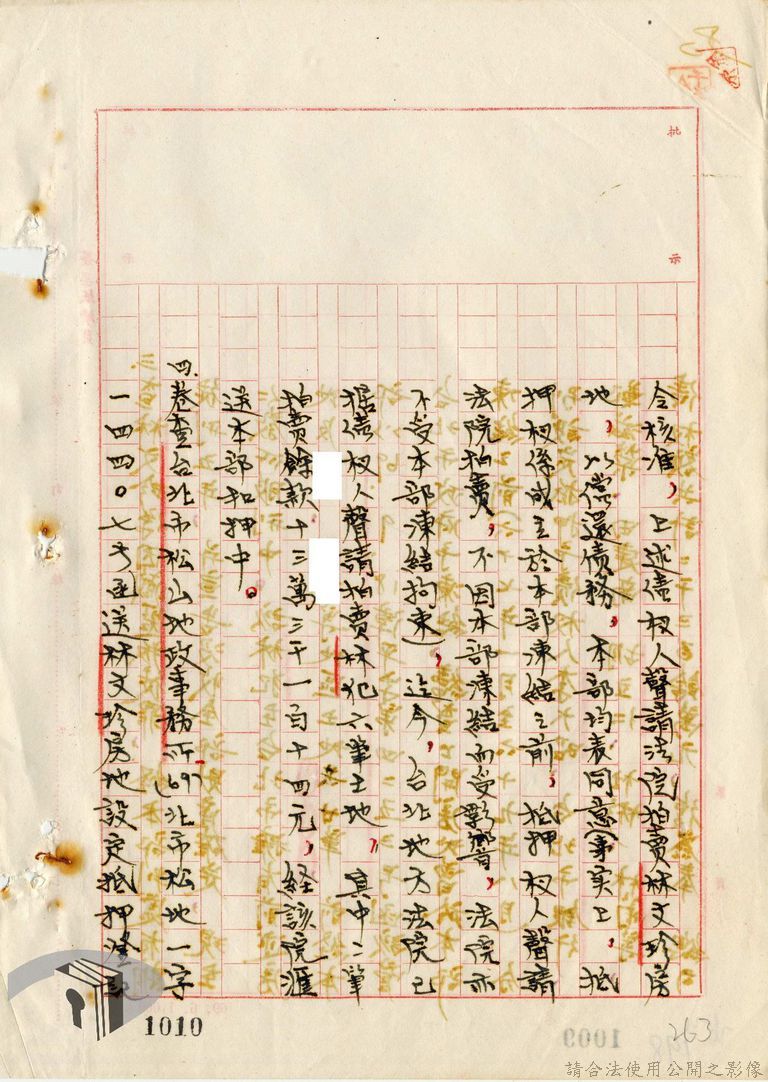 批示
令核准，上述債权人聲請法院拍賣林文珍房
地，以償還債務，本部均表同意(事实上，抵
押权係成立於本部凍結之前，抵押权人聲請
法院拍賣，不因本部凍結而受影響，法院亦
不受本部凍結拘束)，迄今，台北地方法院已
据債权人聲請拍賣林犯六筆土地，其中二筆
拍賣餘款十三萬三千一百十四元，経該院滙
送本部扣押中。
四.卷查台北市松山地政事務所(69)北市松地一字
一四四〇七号函送林文珍房地設定抵押登記
1010
1009
263
請合法使用公開之影像